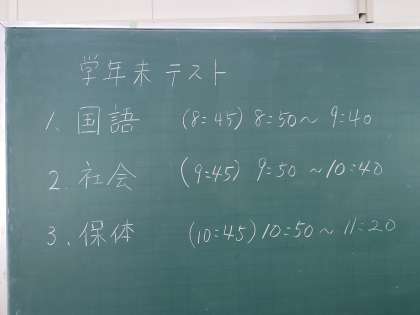 学年末テスト
1、国語 (8:45) 8:50〜9:40
2.社会 (9:45) 9:50〜10:40
3、保体 (10:45) 10:50〜11:20